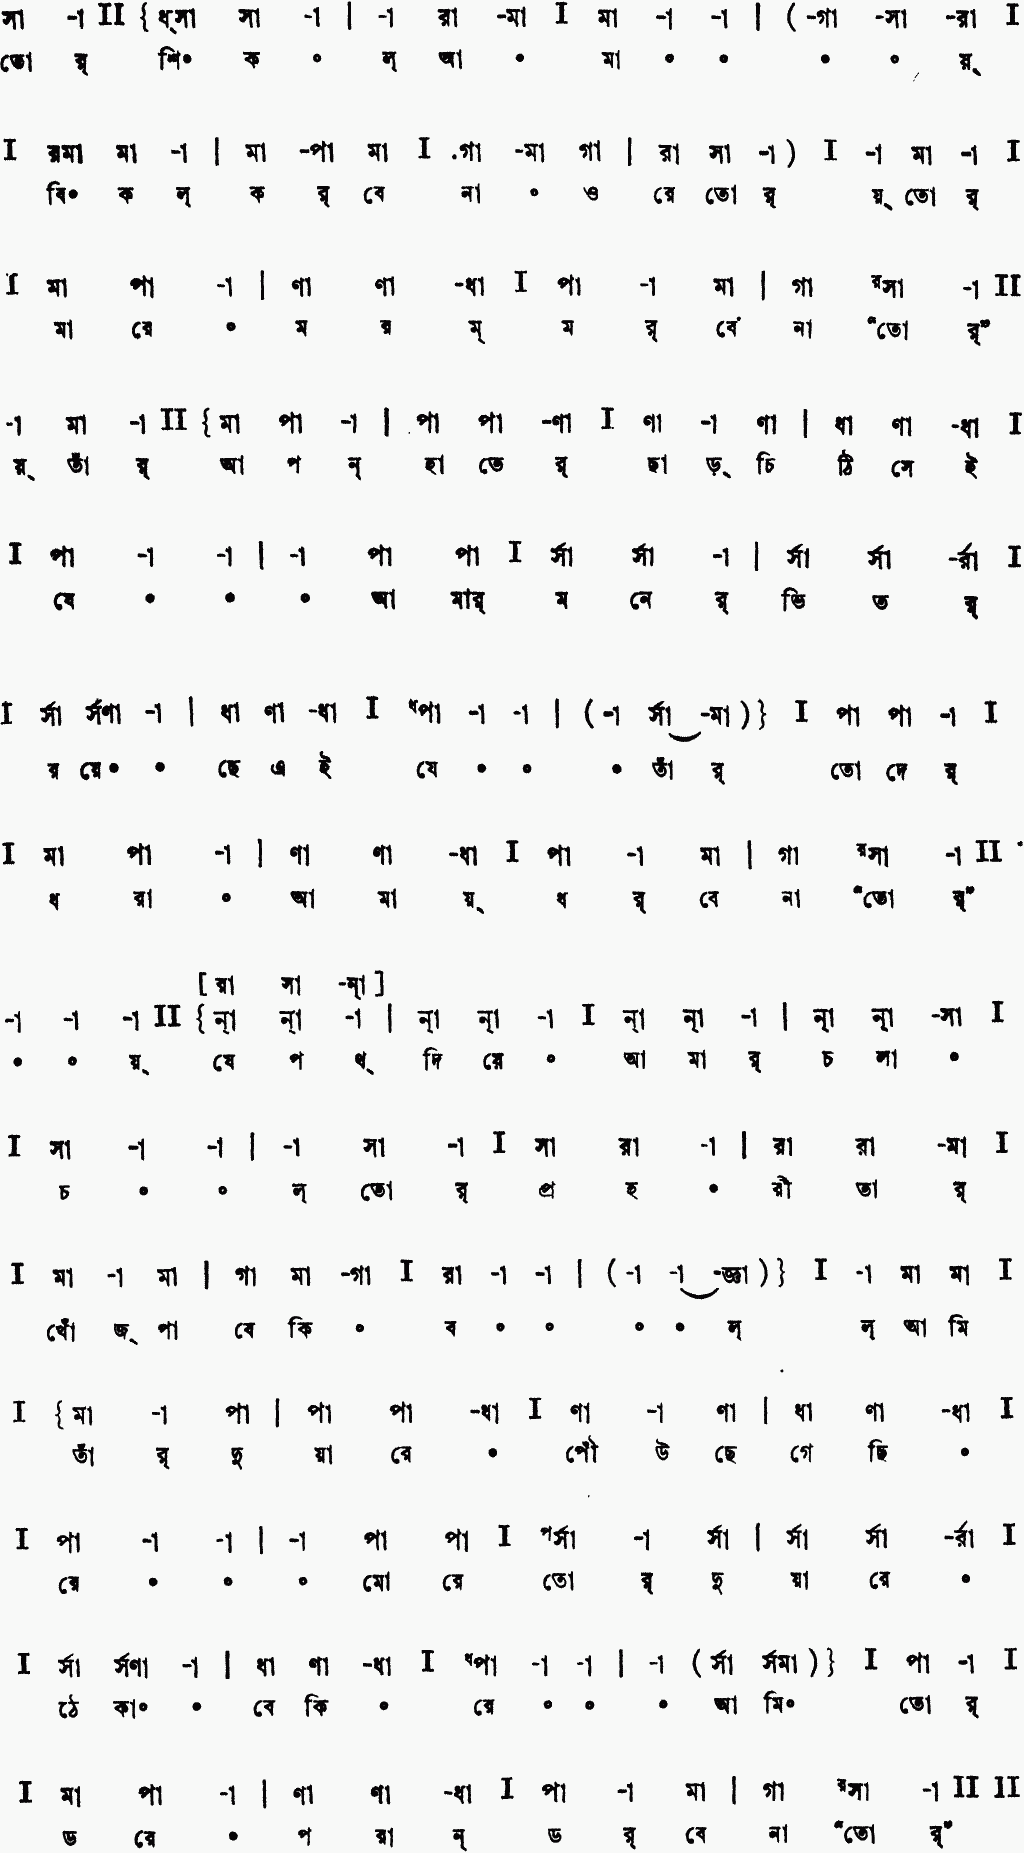 সা -া II {ধ্‌সা সা -া | -া রা -মা I মা -া -া | (-গা -সা -রা I
তো র্ শি॰ ক ॰ ল্ আ ॰ মা ॰ ॰ ॰ ॰ য়্
I রমা মা -া | মা -পা মা I গা -মা গা | রা সা -া) I -া মা -া I
বি॰ ক ল্ ক র্ বে না ॰ ও রে তো র্ য়্ তো র্
I মা পা -া | ণা ণা -ধা I পা -া মা | গা রসা -া II
মা রে ॰ ম র ম্ ম র্ বে না “তো র্”
-া মা -া II {মা পা -া | পা পা -ণা I ণা -া ণা | ধা ণা -ধা I
য়্ তাঁ র্ আ প ন্ হা তে র্ ছা ড়্ চি ঠি সে ই
I পা -া -া | -া পা পা I র্সা র্সা -া | র্সা র্সা -র্রা I
যে ॰ ॰ ॰ আ মার্ ম নে র্ ভি ত র্
I র্সা র্সণা -া | ধা ণা -ধা I ধপা -া -া | (-া র্সা -মা)} I পা পা -া I
র য়ে॰ ॰ ছে এ ই যে ॰ ॰ ॰ তাঁ র্ তো দে র্
I মা পা -া | ণা ণা -ধা I পা -া মা | গা রসা -া II
ধ রা ॰ আ মা য়্ ধ র্ বে না “তো র্”
[রা সা -ন্‌া]
-া -া -া II {ন্‌া ন্‌া -া | ন্‌া ন্‌া -া I ন্‌া ন্‌া -া | ন্‌া ন্‌া -সা I
॰ ॰ য়্ যে প থ্ দি য়ে ॰ আ মা র্ চ লা ॰
I সা -া -া | -া সা -া I সা রা -া | রা রা -মা I
চ ॰ ॰ ল্ তো র্ প্র হ ॰ রী তা র্
I মা -া মা | গা মা -গা I রা -া -া | (-া -া -জ্ঞা)} I -া মা মা I
খোঁ জ্ পা বে কি ॰ ব ॰ ॰ ॰ ॰ ল্ ল্ আ মি
I {মা -া পা | পা পা -ধা I ণা -া ণা | ধা ণা -ধা I
তাঁ র্ দু য়া রে ॰ পৌঁ উ ছে গে ছি ॰
I পা -া -া | -া পা পা I পর্সা -া র্সা | র্সা র্সা -র্রা I
রে ॰ ॰ ॰ মো রে তো র্ দু য়া রে ॰
I র্সা র্সণা -া | ধা ণা -ধা I ধপা -া -া | -া (র্সা র্সমা)} I পা -া I
ঠে কা॰ ॰ বে কি ॰ রে ॰ ॰ ॰ আ মি॰ তো র্
I মা পা -া | ণা ণা -ধা I পা -া মা | গা রসা -া II II
ড রে ॰ প রা ন্ ড র্ বে না “তো র্”